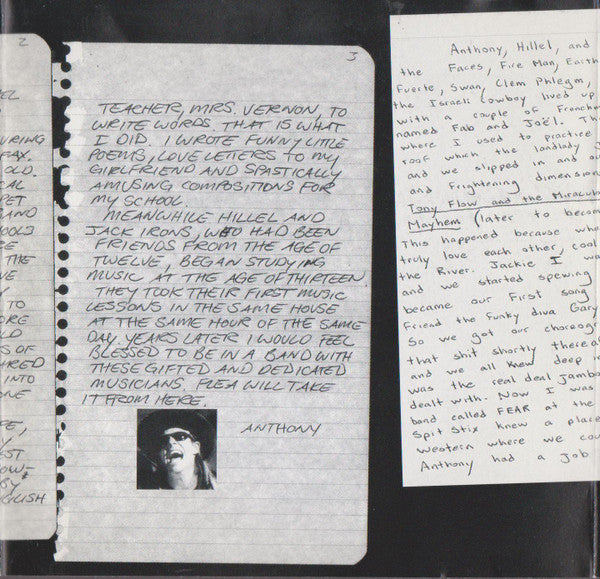 2
EL
URING
FAX.
OLD.
CAL
PET
AND
OOLS
E
THE
VE
Y
TO
ORE
LD
S OF
ARED
INTO
ONE
PE,
Y
EST
OW-
BY
GLISH
3
TEACHER, MRS. VERNON, TO
WRITE WORDS. THAT IS WHAT
I DID. I WROTE FUNNY LITTLE
POEMS, LOVE LETTERS TO MY
GIRLFRIEND AND SPASTICALLY
AMUSING COMPOSITIONS FOR
MY SCHOOL.
MEANWHILE HILLEL AND
JACK IRONS, WHO HAD BEEN
FRIENDS FROM THE AGE OF
TWELVE, BEGAN STUDYING
MUSIC AT THE AGE OF THIRTEEN.
THEY TOOK THEIR FIRST MUSIC
LESSONS IN THE SAME HOUSE
AT THE SAME HOUR OF THE SAME
DAY. YEARS LATER I WOULD FEEL
BLESSED TO BE IN A BAND WITH
THESE GIFTED AND DEDICATED
MUSICIANS. FLEA WILL TAKE
IT FROM HERE.
ANTHONY
Anthony, Hillel, and
the Faces, Fire Man, Earth
Fuerte, Swan, Clem Phlegm,
the Israeli Cowboy lived up
with a couple of Frenchm
named Fab and Joël. Th
where I used to practice
roof which the landlady
and we slipped in and ou
and frightening dimension
Tony Flow and the Miraculou
Mayhem (later to becom
This happened because wh
truly love each other, cool
the River. Jackie I wa
and we started spewing
became our first song
Friend the funky diva Gary
So we got our choreog
that shit shortly thereaf
and we all knew deep i
was the real deal jambo
dealt with. Now I was
band called FEAR at the
Spit Stix knew a place
western where we cou
Anthony had a job